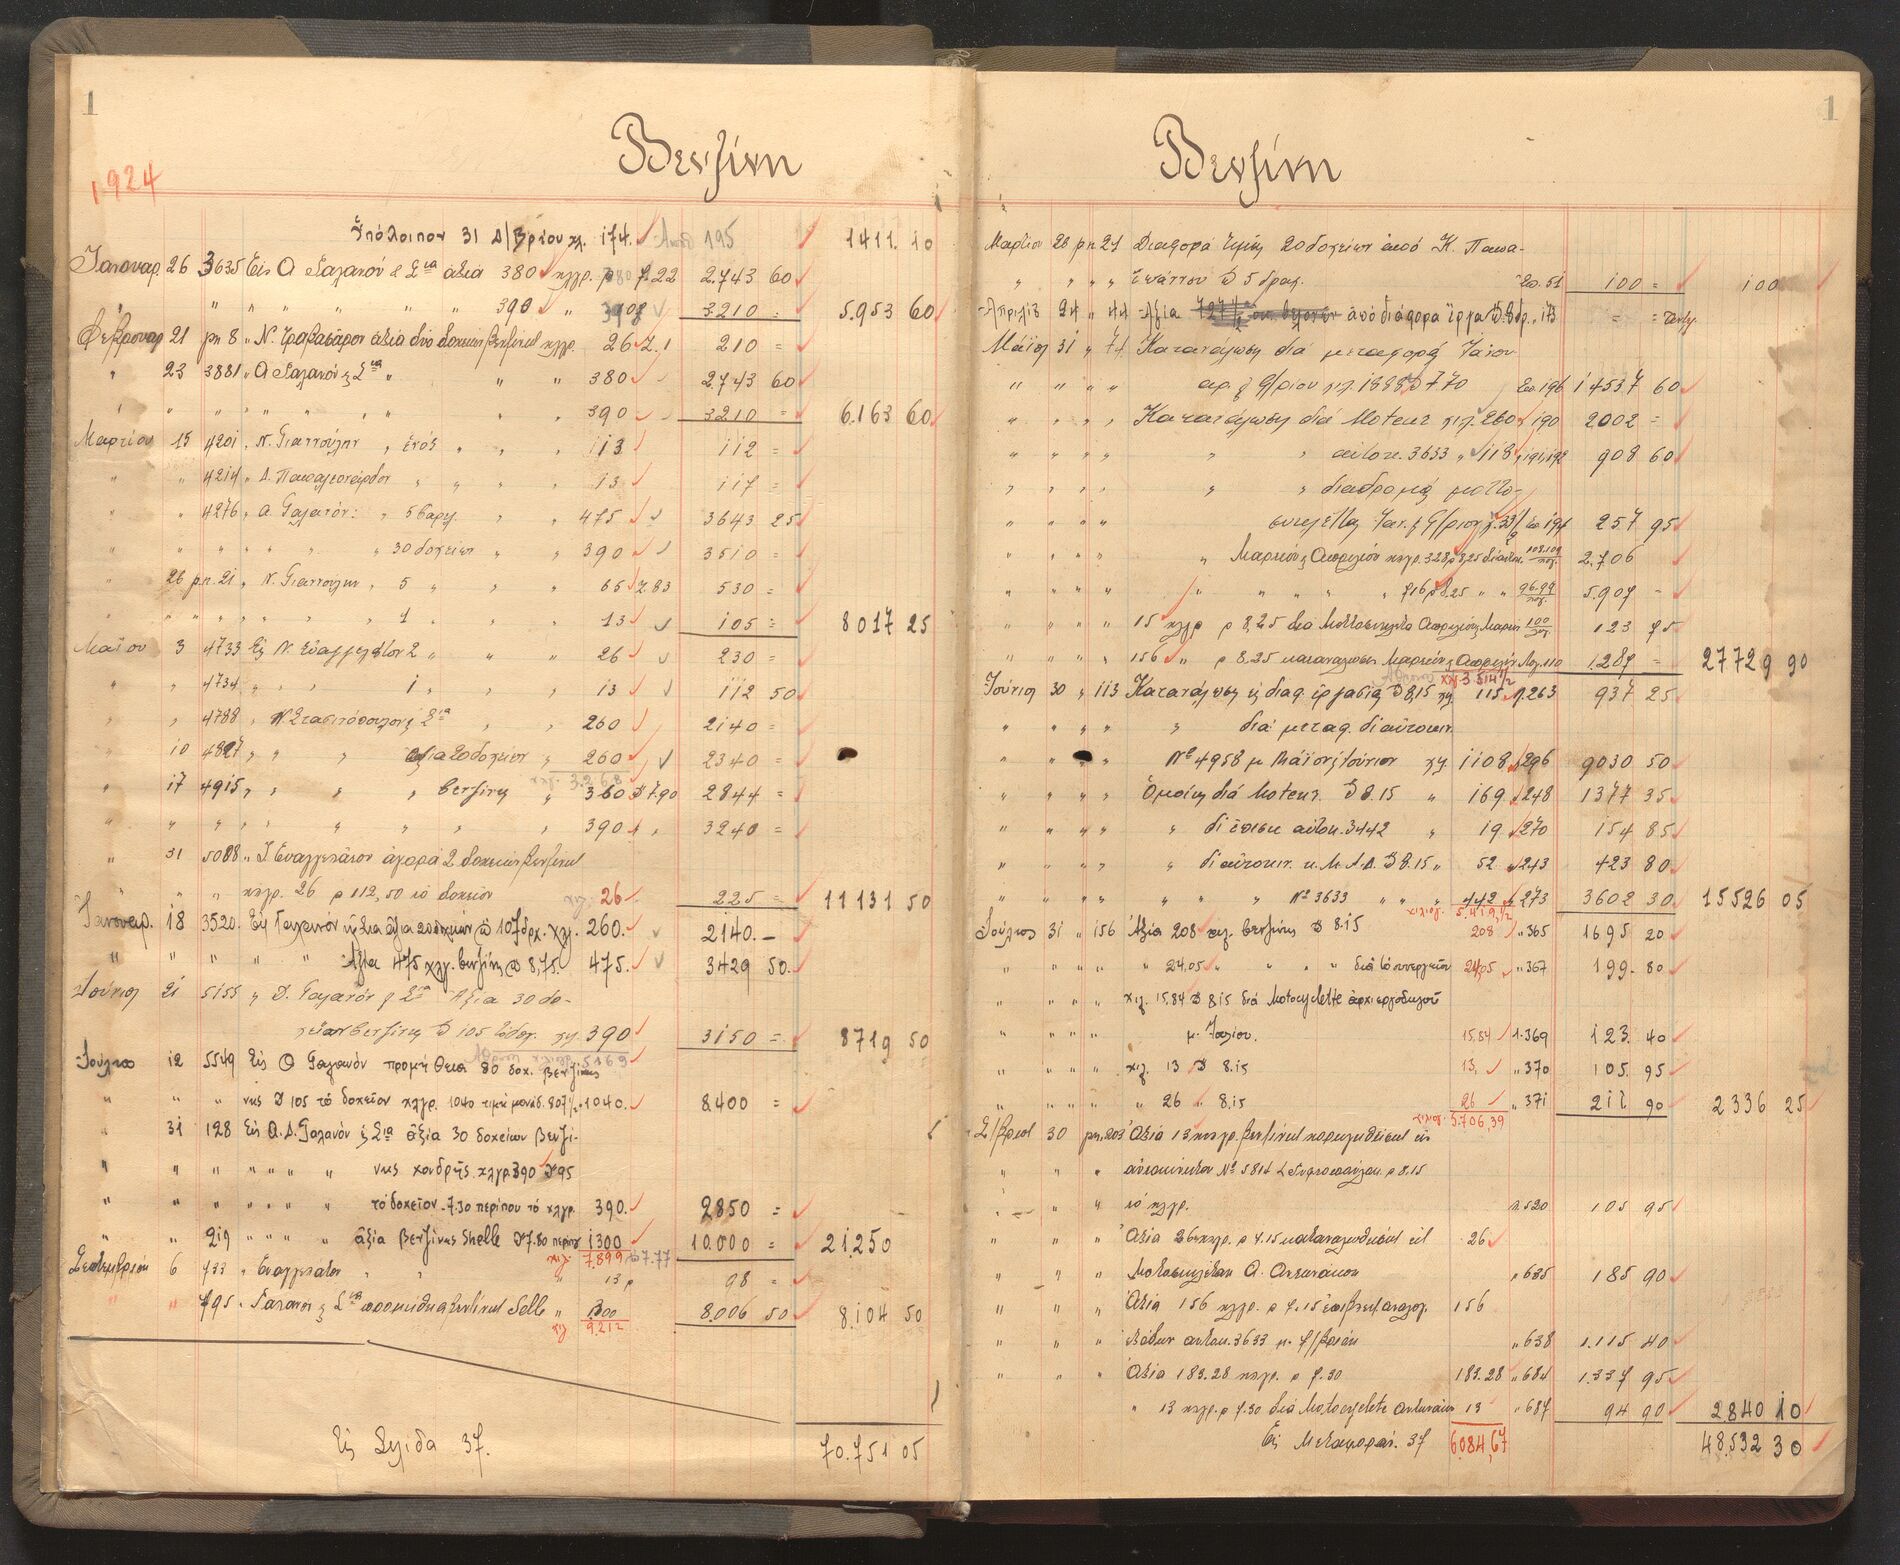 1
Βενζίνη
1924
Ὑπόλοιπον 31 Δ/βρίου χλ. 174. 195 1411. 10
Ἰανουαρ. 26 3635 Εἰς Θ Γαλανόν & Σια ἀξία 380 χλγρ. 7.22 2.743 60
" " " " " " 390 " 390 3210 = 5.953 60
Φεβρουαρ 21 ρη 8 " Ν. ἀξία δύο δοχείων βενζίνης χλγρ. 26 7.1 210 =
" 23 3881 " Θ Γαλανόν & Σια " " " 380 2.743 60
" " " " " " " 390 3210 = 6.163 60
Μαρτίου 15 4201 " Ν. Γιαννούλην " ἑνός " " " 113 112 =
" " 4214 " Δ. " " " " 13 117 =
" " 4276 " Θ. Γαλανόν: " 5 βαρελ. " " 475 3643 25
" " " " " " " 30 δοχείων " " 390 3510 =
" 26 ρ.η. 21 " Ν. Γιαννούλην " 5 " " " 65 7.83 530 =
" " " " " " " 1 " " " 13 105 = 8017 25
Μαΐου 3 4733 Εἰς Ν. Εὐαγγελάτον 2 " " " 26 230 =
" " 4734 " " " 1 " " " 13 112 50
" " 4788 " Ν. Στασινόπουλον & Σια " " 260 2140 =
" 10 4827 " " " ἀξία 20 δοχείων " 260 2340 =
χλγ. 3.268
" 17 4915 " " " " βενζίνης " 360 7.90 2844 =
" " " " " " " " " 390 " " 3240 =
" 31 5088 " Ι Ευαγγελάτον ἀγορά 2 δοχείων βενζίνης
" " " χλγρ. 26 ρ 112,50 τό δοχεῖον χλγ. 26 225 = 11131 50
Ἰανουαρ. 18 3520. Εἰς Γαλανόν & Σια ἀξία 20 δοχείων 107 δρχ. χλγ. 260. 2140. —
" " " " " Ἀξία 475 χλγ. βενζίνης 8,75. 475. 3429 50
Ἰούνιος 21 5155 " Θ. Γαλανόν & Σια Ἀξία 30 δο-
χείων βενζίνης 105 χλγ. 390 3150 = 8719 50
5169
Ἰούλιος 12 5549 Εἰς Θ Γαλανόν προμήθεια 80 δοχ. βενζίνης
" " " νης 105 τό δοχεῖον χλγρ. 1040 τιμή μονάδ. 807½ 1040. 8.400 =
" 31 128 Εἰς Θ. Δ. Γαλανόν & Σια ἀξία 30 δοχείων βενζί-
" " " " " " " νης χονδρῆς χλγρ 390 95
" " " " " " " τό δοχεῖον - 7.30 περίπου τό χλγρ. 390. 2850 =
" " 219 " " " " ἀξία βενζίνης Shelle 7.80 περίπου 1300 10.000 = 21.250
χιλ. 7.899 7.77
Σεπτεμβρίου 6 733 " Ευαγγελάτον " " " 13 ρ 98 =
" " 795 " Γαλανόν & Σια προμήθεια βενζίνης Selle " 1300 8.006 50 8.104 50
χιλ 9.212
Εἰς Σελίδα 37. 70.751 05
1
Βενζίνη
Μαρτίου 26 ρη 21 Διαφορά τιμῆς 20 δοχείων ἀπό Κ. Παπα-
" " " " ϊωάννου 5 δραχ. 20.51 100 = 100
Ἀπριλίου 24 " 44 Ἀξία ἀπό διάφορα ἔργα " 173 = =
Μάϊος 31 " 74 Κατανάλωσις διά μεταφοράς Ἰανου
" " " " αρ. & Φ/ρίου χιλ. 1888 770 20.196 14537 60
" " " " Κατανάλωσις διά Moteur χιλ. 260 190 2002 =
" " " " " " αὐτοκ. 3633 " 118 " 191,192 908 60
" " " " " " διαδρομάς μοτο-
" " " " συκλέττας Ἰαν. & Φ/ρίου 257 95
" " " " " Μαρτίου & Απριλίου χλγρ. 328 ρ 8,25 108.109 2.706
" " " " " " " " " 716 ρ 8.25 " " 96.99 5.907 -
" " " " 15 χλγρ ρ 8,25 διά Μοτοσυκλέτα Απριλίου & Μαρτίου 100 123 75
" " " " 156 " ρ 8,25 κατανάλωσις Μαρτίου & Απριλίου 110 1.287 = 27729 90
χλγ 3514½
Ἰούνιος 30 " 113 Κατανάλωσις εἰς διαφ. ἐργασίας 8,15 χγ. 115 1.263 937 25
" " " " " διά μεταφ. δι αὐτοκιν.
" " " Νο 4958 μ. Μάϊον & Ἰούνιον χγ. 1108 296 9030 50
" " " " Ὁμοίως διά Moteur. 8.15 " 169 248 1377 35
" " " " " αὐτοκ. 3442 " 19 270 154 85
" " " " " δι αὐτοκιν. 8.15 " 52 243 423 80
" " " " " " " Νο 3633 " " " 442 273 3602 30 15526 05
χιλιογ. 5.419,½
Ἰούλιος 31 " 156 Ἀξία 208 χιλ. βενζίνης 8.15 208 " 365 1695 20
" " " " " 24.05 " " " " διά τό συνεργεῖον 24,05 " 367 199. 80
" " " " χιλ. 15.84 8.15 διά Motocyclette ἀρχιεργοδηγοῦ
" " " " μ. Ἰουλίου. 15.84 1.369 123. 40
" " " " χιλ. 13 8.15 13, " 370 105. 95
" " " " " 26 " 8.15 26 " 371 211 90 2336 25
χιλιογ. 5.706,39
Σ/βριος 30 ρη. 203 Ἀξία 13 χλγρ. βενζίνης χορηγηθείσης εἰς
" " " αὐτοκίνητον Νο 5814 ρ 8.15
" " " τό χλγρ. 1.520 105 95
" " " Ἀξία 26 χλγρ. ρ 7.15 καταναλωθείσης εἰς 26
" " " Μοτοσυκλέταν Θ. Αντωνάκου " 635 185 90
" " " Ἀξία 156 χλγρ. ρ 7.15 156
" " " αυτοκ. 3633 " 638 1.115 40
" " " Ἀξία 183.28 χλγρ. ρ 7.30 183.28 " 684 1.337 95
" 13 χλγρ. ρ 7.30 διά Motocyclete Αντωνάκου 13 " 687 94 90 2.840 10
Εἰς Μεταφοράν. 37 6084,67 48,532 30